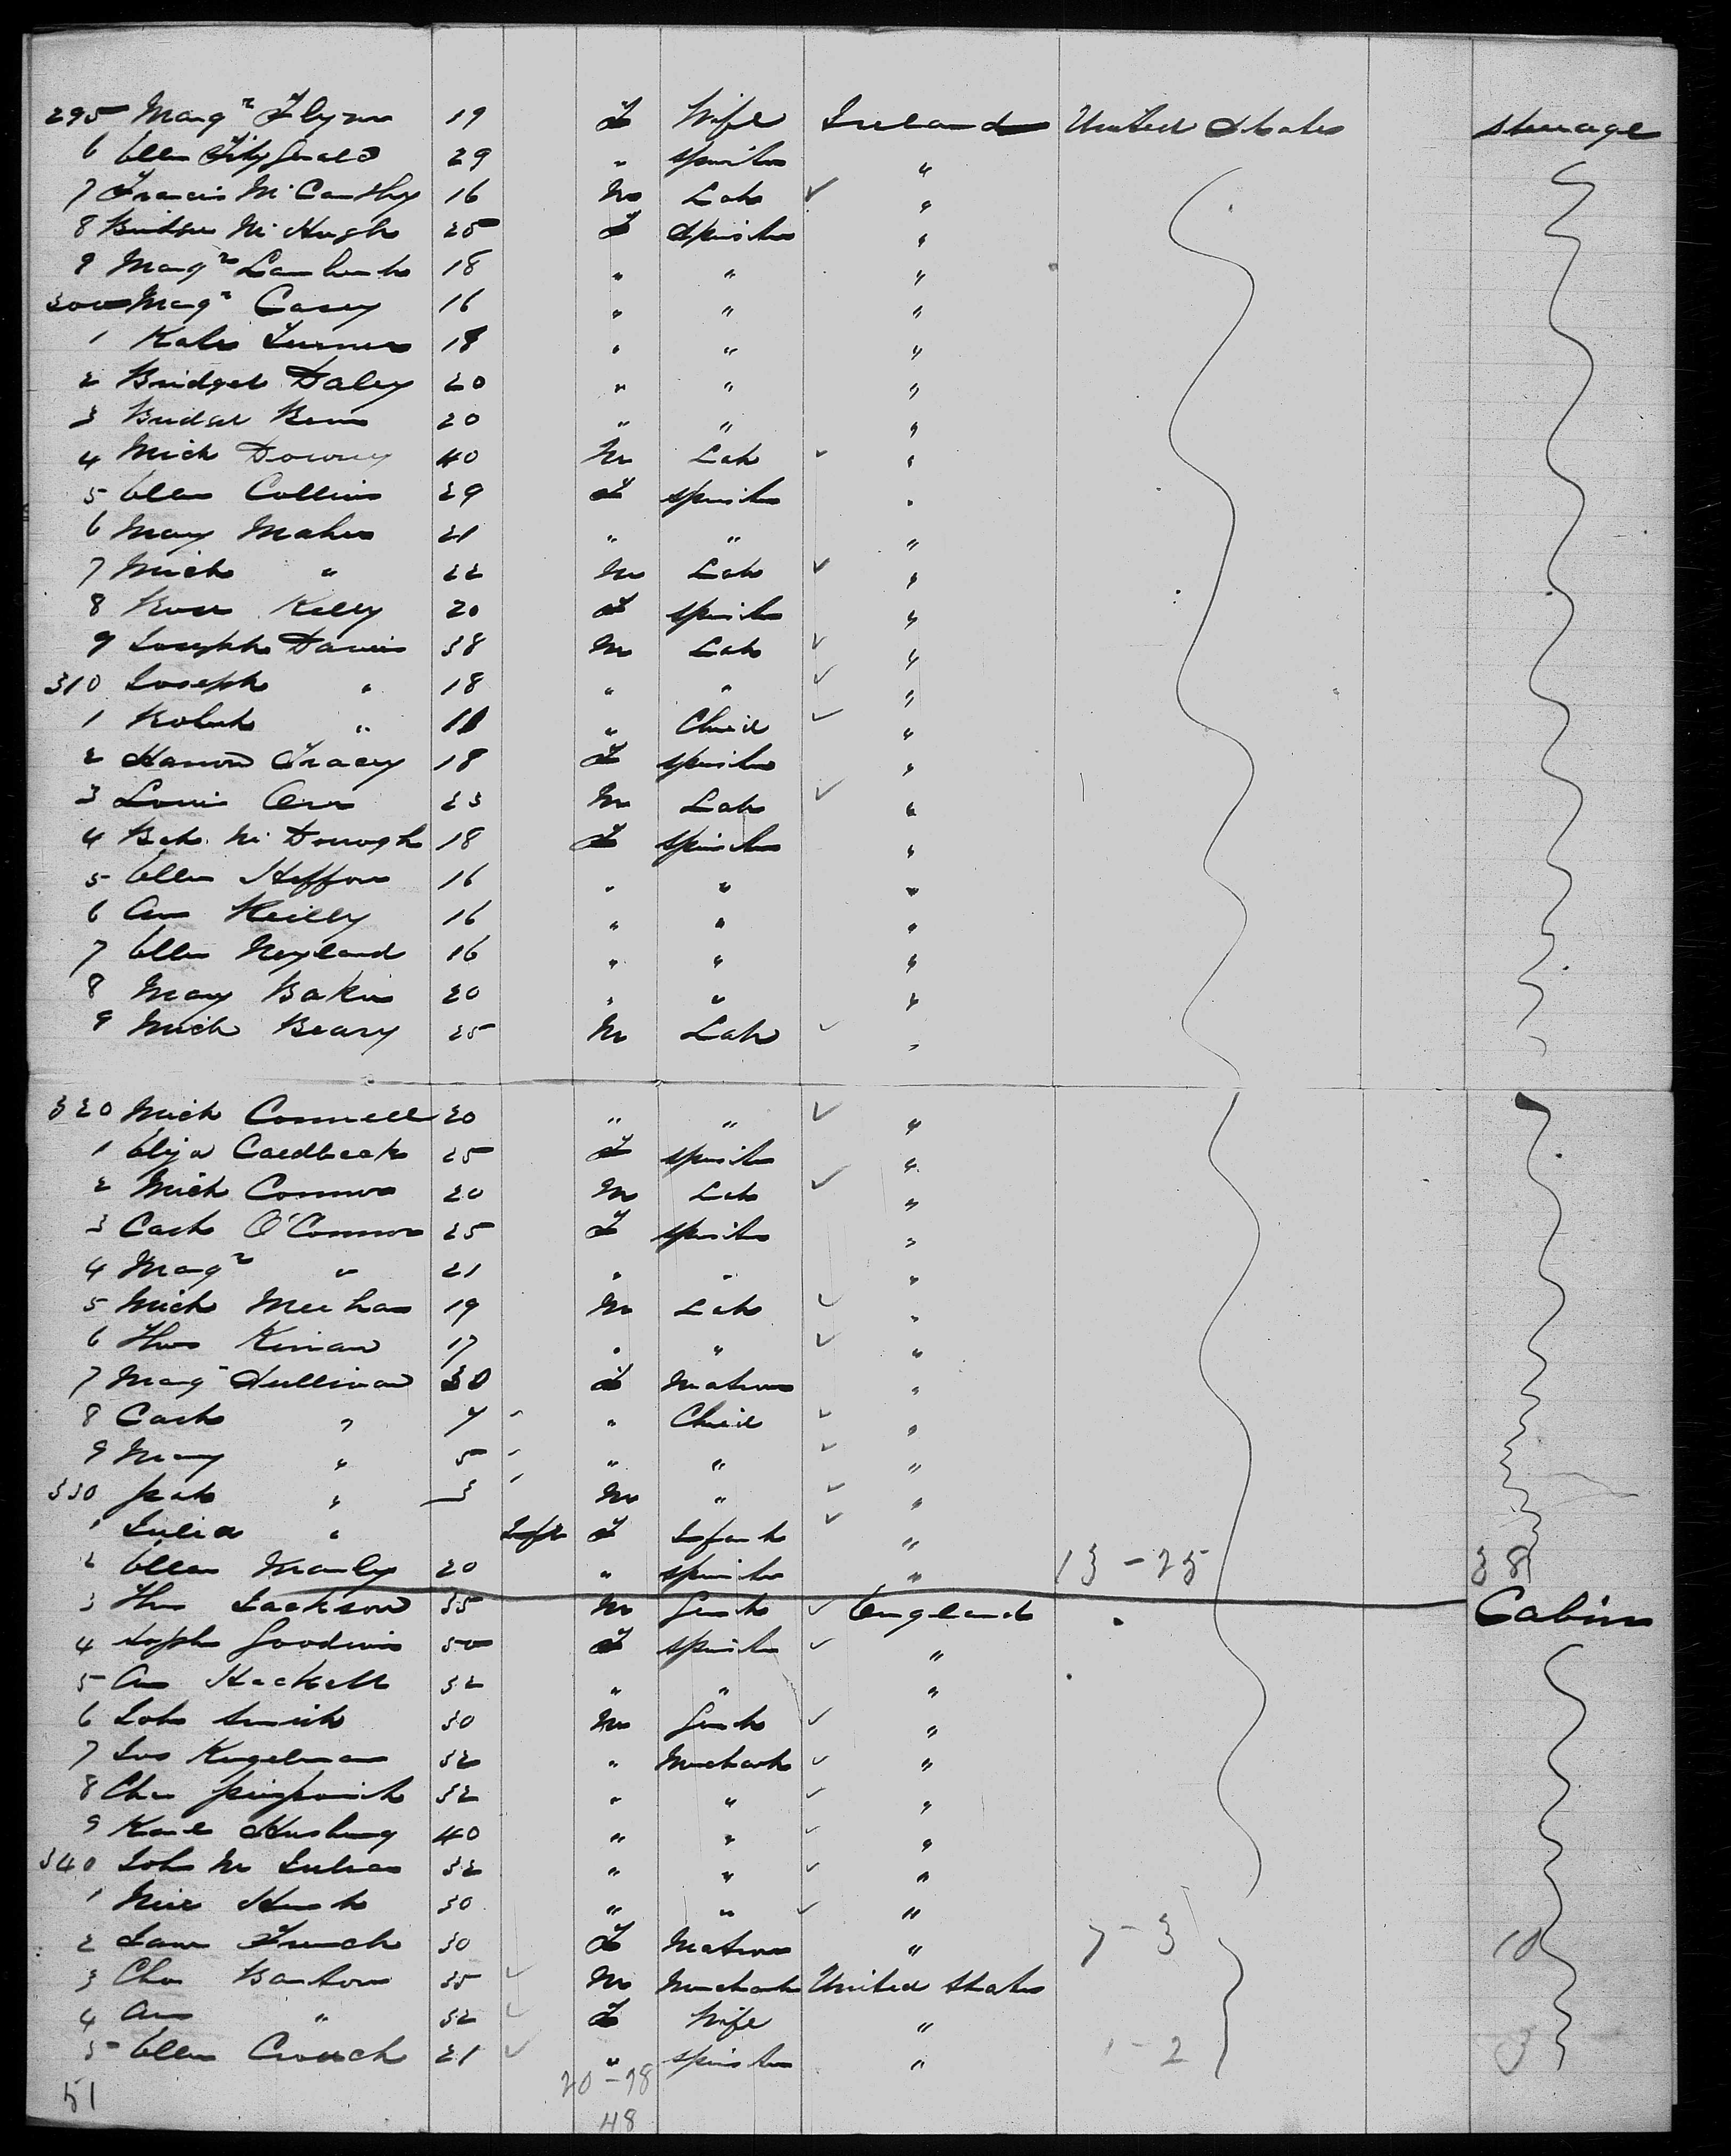 295 Marg^r Flynn 19 F Wife Ireland United States steerage
6 Ellen Fitzgerald 29 " spinster "
7 Francis McCarthy 16 M Lab ✓ "
8 Bridget McHugh 25 F Spinster "
9 Marg^r Lambert 18 " " "
300 Marg^r Casey 16 " " "
1 Kate Turner 18 " " "
2 Bridget Daley 20 " " "
3 Bridget 20 " " "
4 Mich Downey 40 M Lab ✓ "
5 Ellen Collins 29 F spinster "
6 Mary Maher 21 " " "
7 Mich " 22 M Lab ✓ "
8 Rose Kelly 20 F spinster "
9 Joseph Davis 38 M Lab ✓ "
310 Joseph " 18 " " ✓ "
1 Robert " 11 " Child ✓ "
2 Hanna Tracey 18 F spinster "
3 Louis Orr 23 M Lab ✓ "
4 McDonogh 18 F spinster "
5 Ellen Heffron 16 " " "
6 Ann Reilly 16 " " "
7 Ellen Neyland 16 " " "
8 Mary Baker 20 " " "
9 Mich Beary 25 M Lab ✓ "
320 Mich Connell 20 " " ✓ "
1 Eliza Caedbeck 25 F spinster "
2 Mich Connor 20 M Lab ✓ "
3 Cath O'Connor 25 F spinster "
4 Marg^r " 21 " " "
5 Mich Meehan 19 M Lab ✓ "
6 Thos Kinnan 17 " " ✓ "
7 Marg Sullivan 30 F Matron "
8 Cath " 7 " Child ✓ "
9 Mary " 5 " " ✓ "
330 Pat " 3 M " ✓ "
1 Julia " Inft F Infant ✓ "
2 Ellen Manly 20 " spinster " 13 - 25 38
3 Thos Jackson 35 M Gent ✓ England Cabin
4 Soph Goodwin 50 F spinster ✓ "
5 Ann Heckell 32 " " "
6 John Smith 30 M Gent ✓ "
7 Jos Kugelman 32 " Merchant ✓ "
8 Chas 32 " " ✓ "
9 Karl 40 " " ✓ "
340 John M Julian 32 " " ✓ "
1 30 " " ✓ "
2 Jane French 30 F Matron " 7 - 3 10
3 Chas Barton 35 ✓ M Merchant United States
4 Ann " 32 ✓ F Wife "
5 Ellen Crouch 21 ✓ " spinster " 1 - 2 3
51 20 - 28
48